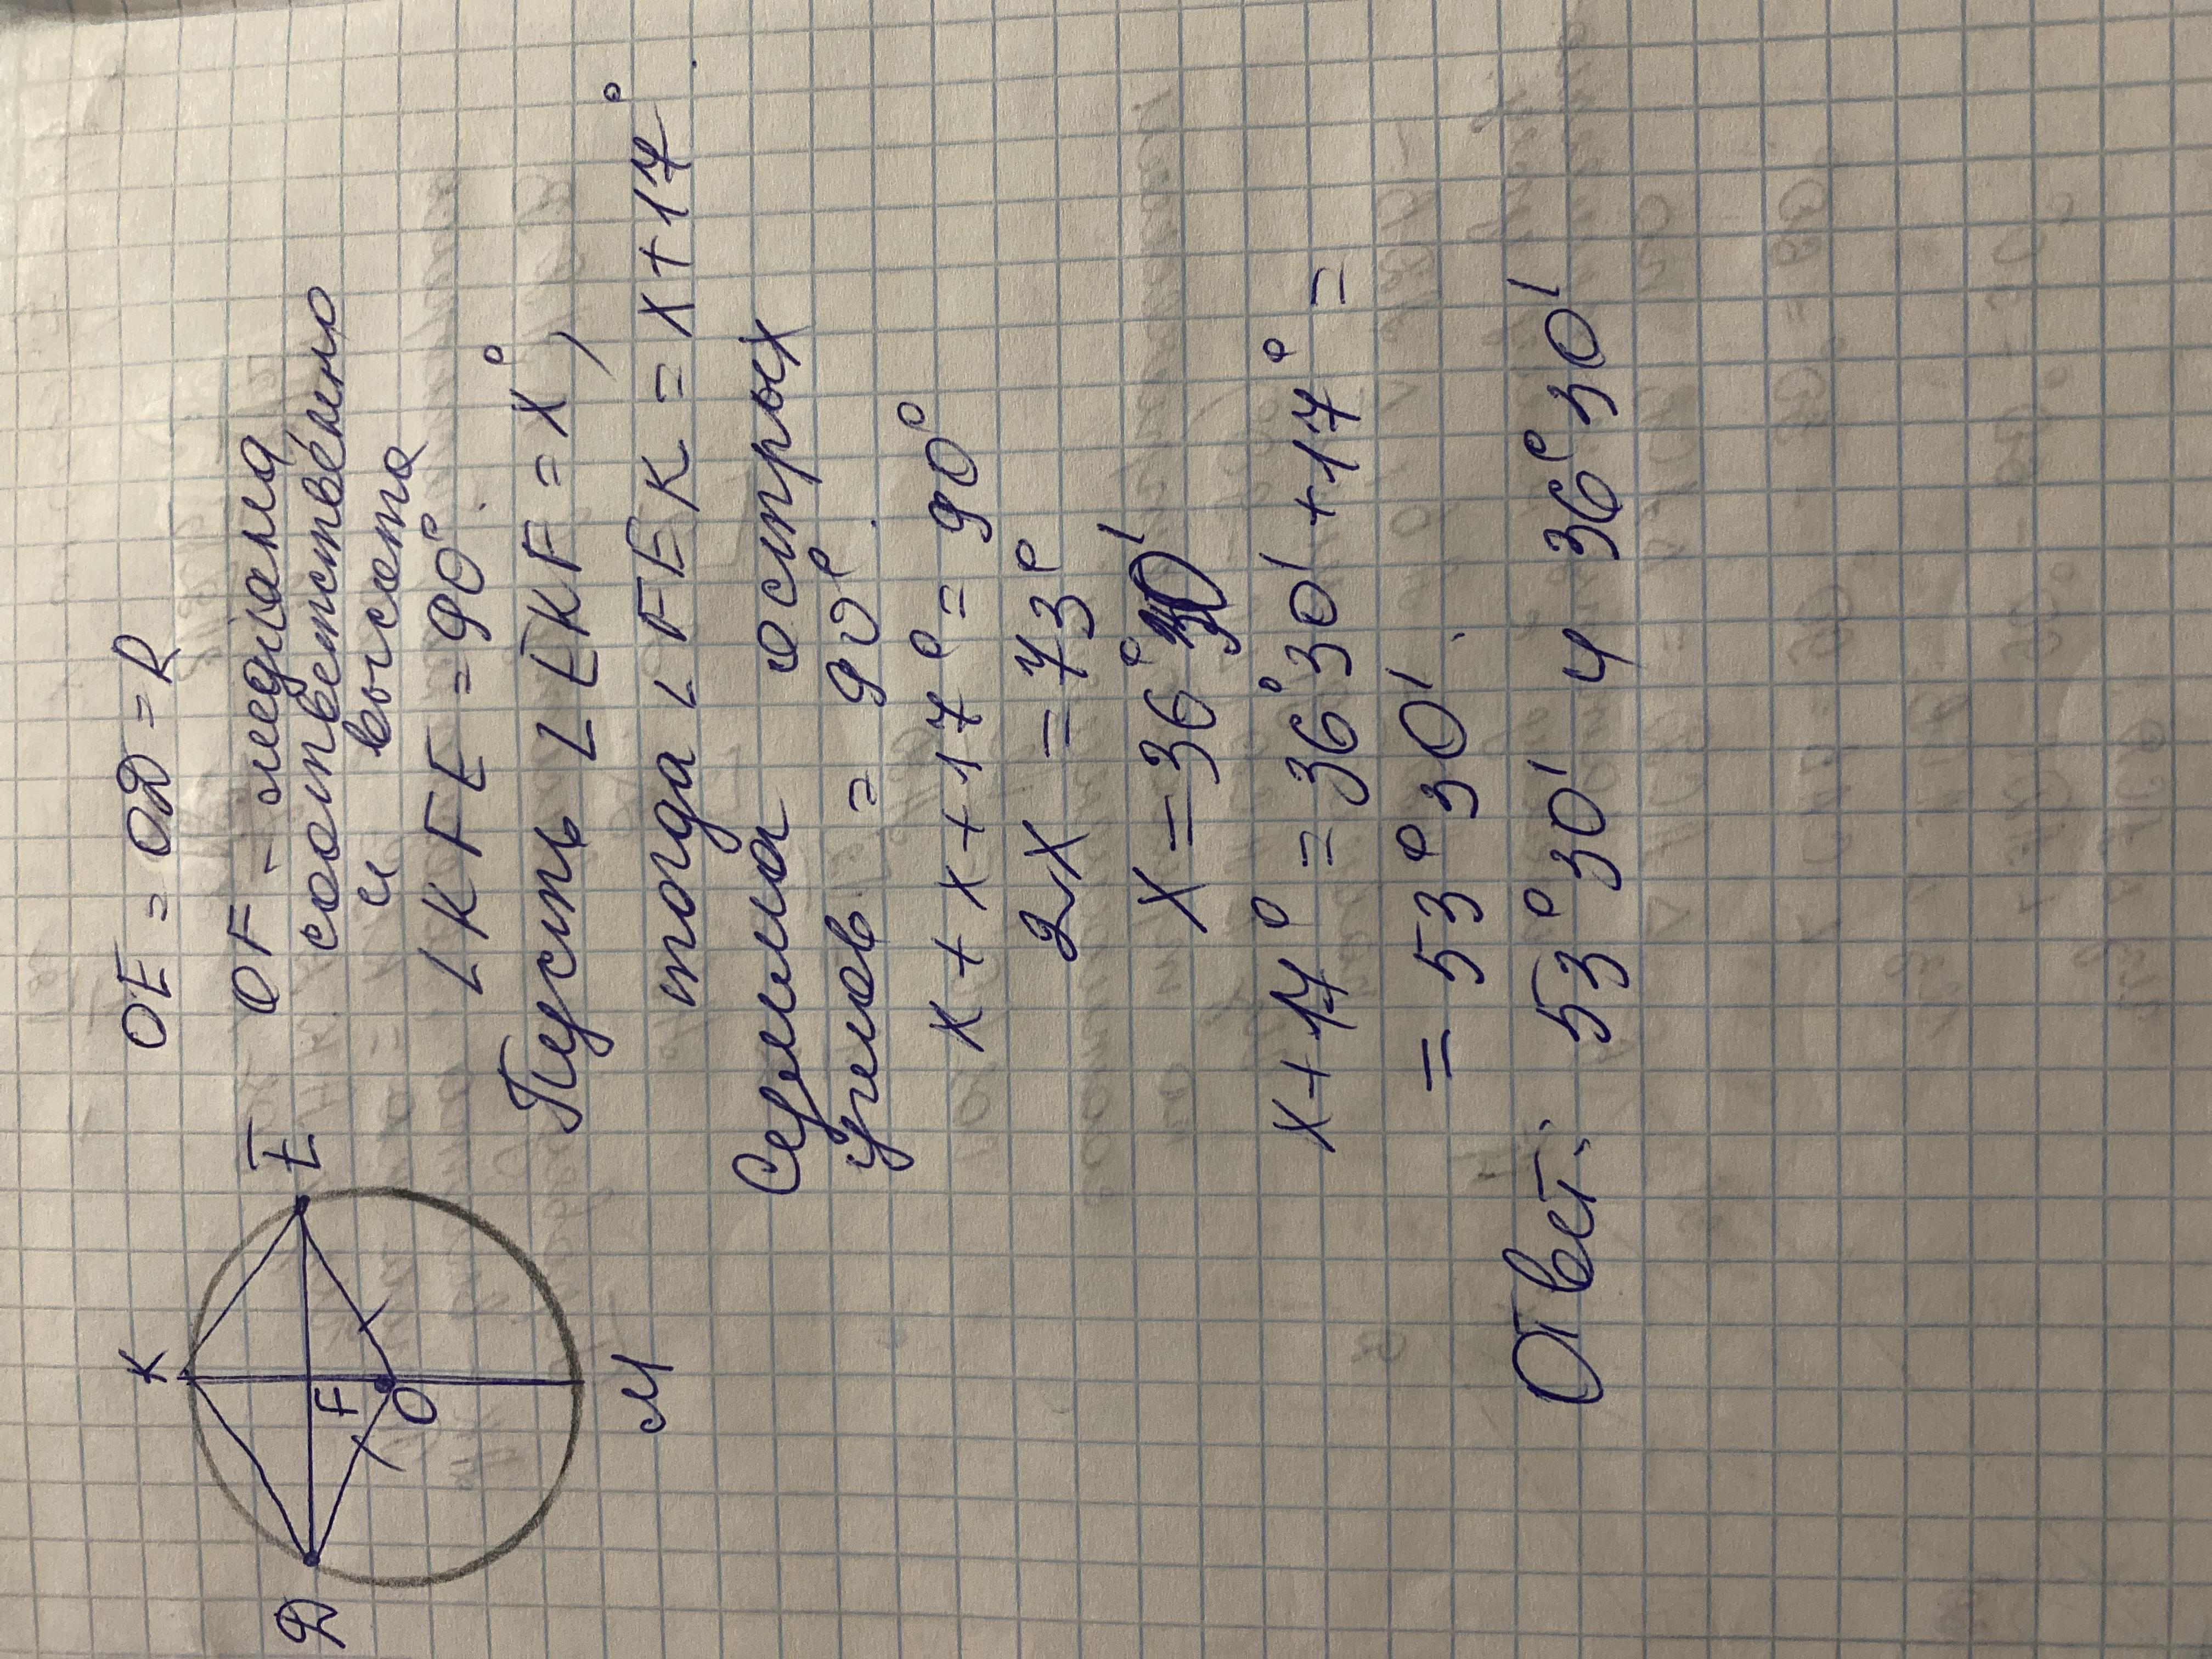 K
E
D
F
O
M
OE = OD = R
OF - медиана
соответственно
и высота
∠KFE = 90°.
Пусть ∠EKF = x°,
тогда ∠FEK = x+17°.
Сумма острых
углов = 90°.
x + x + 17° = 90°
2x = 73°
x = 36°30'
x + 17° = 36°30' + 17° =
= 53°30'.
Ответ: 53°30' и 36°30'